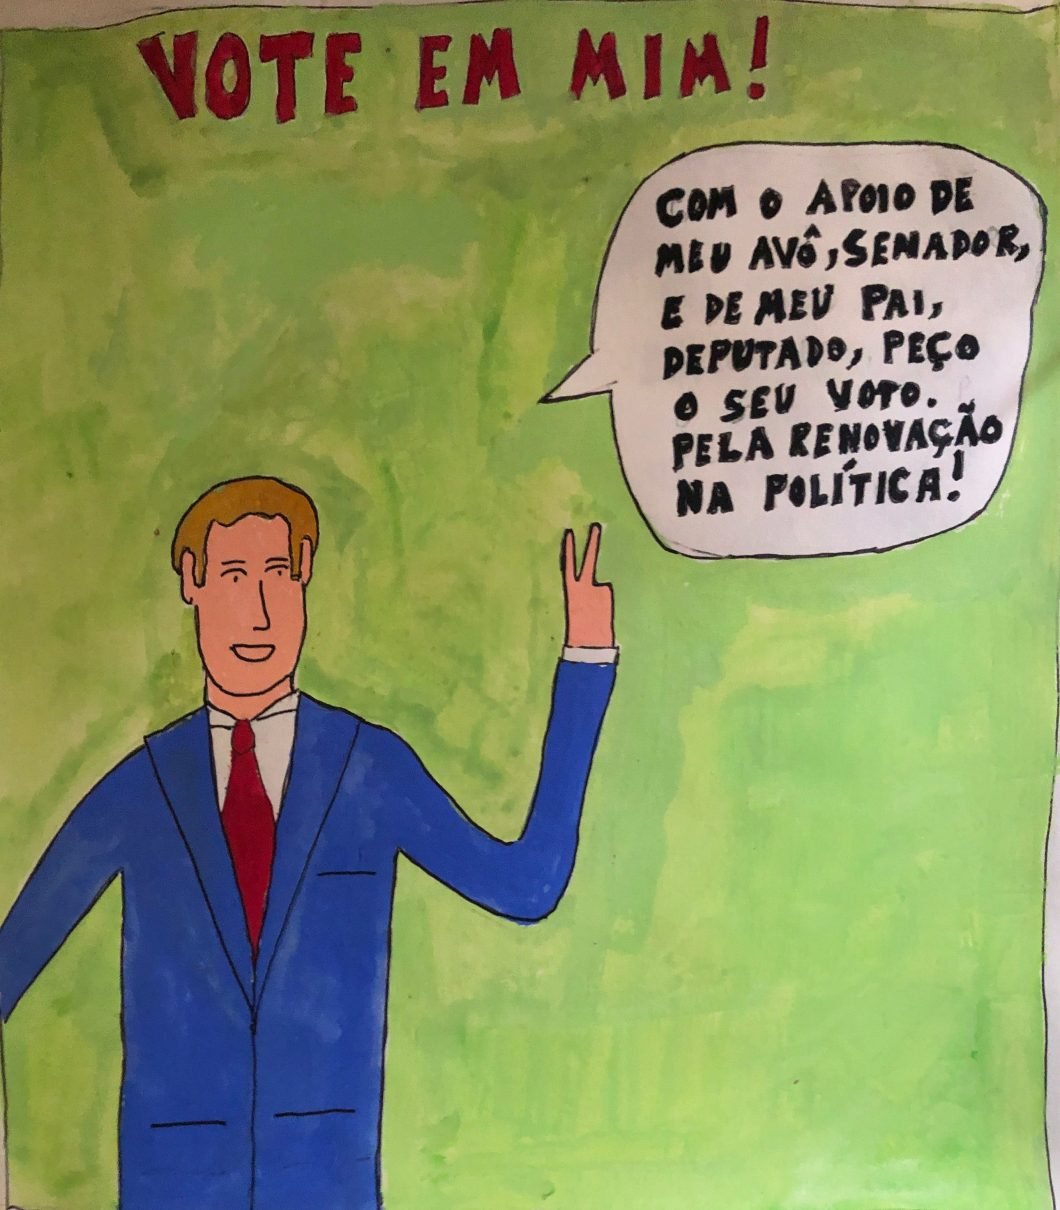 VOTE EM MIM!
COM O APOIO DE
MEU AVÔ, SENADOR,
E DE MEU PAI,
DEPUTADO, PEÇO
O SEU VOTO.
PELA RENOVAÇÃO
NA POLÍTICA!